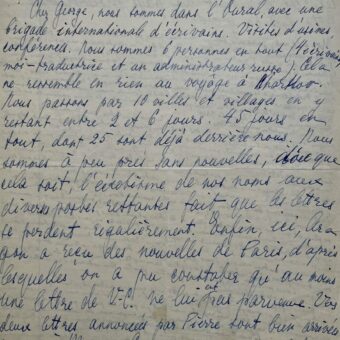 Cher George, nous sommes dans l'Oural, avec une
brigade internationale d'écrivains. Visites d'usines,
conférences. Nous sommes 6 personnes en tout (4 écrivains,
moi-traductrice et un administrateur russe). Cela
ne ressemble en rien au voyage à Kharkov.
Nous passons par 10 villes et villages en y
restant entre 2 et 6 jours. 45 jours en
tout, dont 25 sont déjà derrière nous. Nous
sommes à peu près sans nouvelles, que
cela soit, l'exotisme de nos noms aux
divers postes restantes fait que les lettres
se perdent régulièrement. Enfin, ici,
a reçu des nouvelles de Paris, d'après
lesquelles on a pu constater qu'au moins
une lettre de V.C. ne lui est pas parvenue. Vos
deux lettres annoncées par Pierre sont bien arrivées